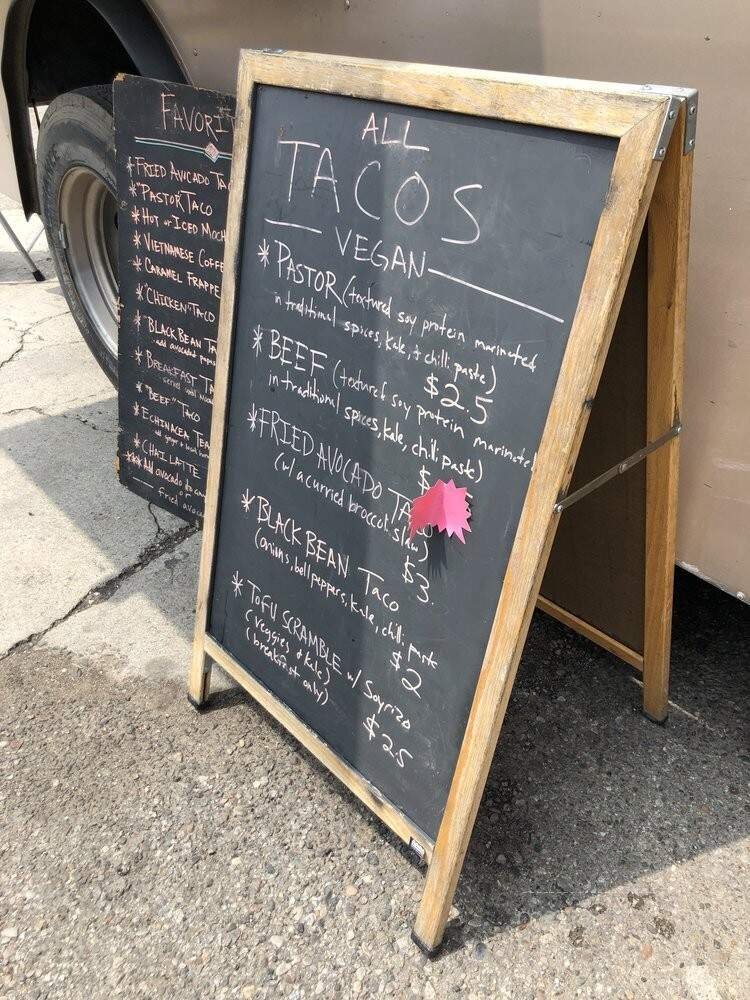 FAVORI
*FRIED AVICADO TA
*"PASTOR" TACO
*HOT or ICED MOCH
*VIETNAMESE COFFE
*CARAMEL FRAPPE
*"CHICKEN" TACO
*BLACK BEAN TA
*BREAKFAST TA
*"BEEF" TACO
*ECHINACEA TEA
*CHAI LATTE
*** Add avocado
or
fried avoca
ALL
TACOS
VEGAN
*PASTOR (textured soy protein marinated
in traditional spices, kale, + chili paste)
$2.5
*BEEF (textured soy protein marinated
in traditional spices, kale, chili paste)
$
*FRIED AVOCADO TACO
(w/ a curried broccoli slaw)
$3.
*BLACK BEAN TACO
(onions, bell peppers, kale, chili paste
$2
*TOFU SCRAMBLE w/ Soyrizo
(veggies + kale)
(breakfast only)
$2.5